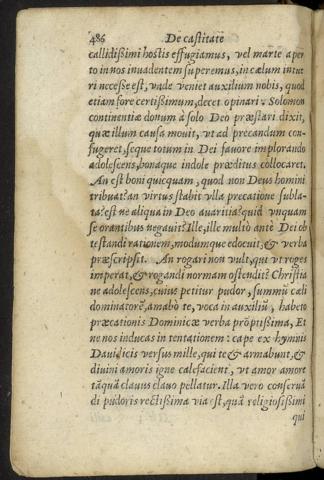 486 De castitate
callidißimi hostis effugiamus, vel marte aper
to in nos inuadentem superemus, in cælum intue
ri necesse est, vnde veniet auxilium nobis, quod
etiam fore certißimum, decet opinari. Solomon
continentiæ donum à solo Deo præstari dixit,
quæ illum causa mouit, vt ad precandum con-
fugeret, seque totum in Dei fauore implorando
adolescens, bonaque indole præditus collocaret.
An est boni quicquam, quod non Deus homini
tribuat? an virtus stabit vlla precatione subla-
ta? est ne aliqua in Deo auaritia? quid vnquam
se orantibus negauit? Ille, ille multò antè Dei ob
testandi rationem, modumque edocuit, & verba
præscripsit. An rogari non vult, qui vt roges
imperat, & rogandi normam ostendit? Christia
ne adolescens, cuius petitur pudor, summũ cæli
dominatorẽ, amabò te, voca in auxiliũ, habeto
præcationis Dominicæ verba prõptißima, Et
ne nos inducas in tentationem: cape ex hymnis
Dauidicis versus mille, qui te & armabunt, &
diuini amoris igne calefacient, vt amor amore
tãquã clauus clauo pellatur. Illa vero conseruã
di pudoris rectißima via est, quã religiosißimi
qui